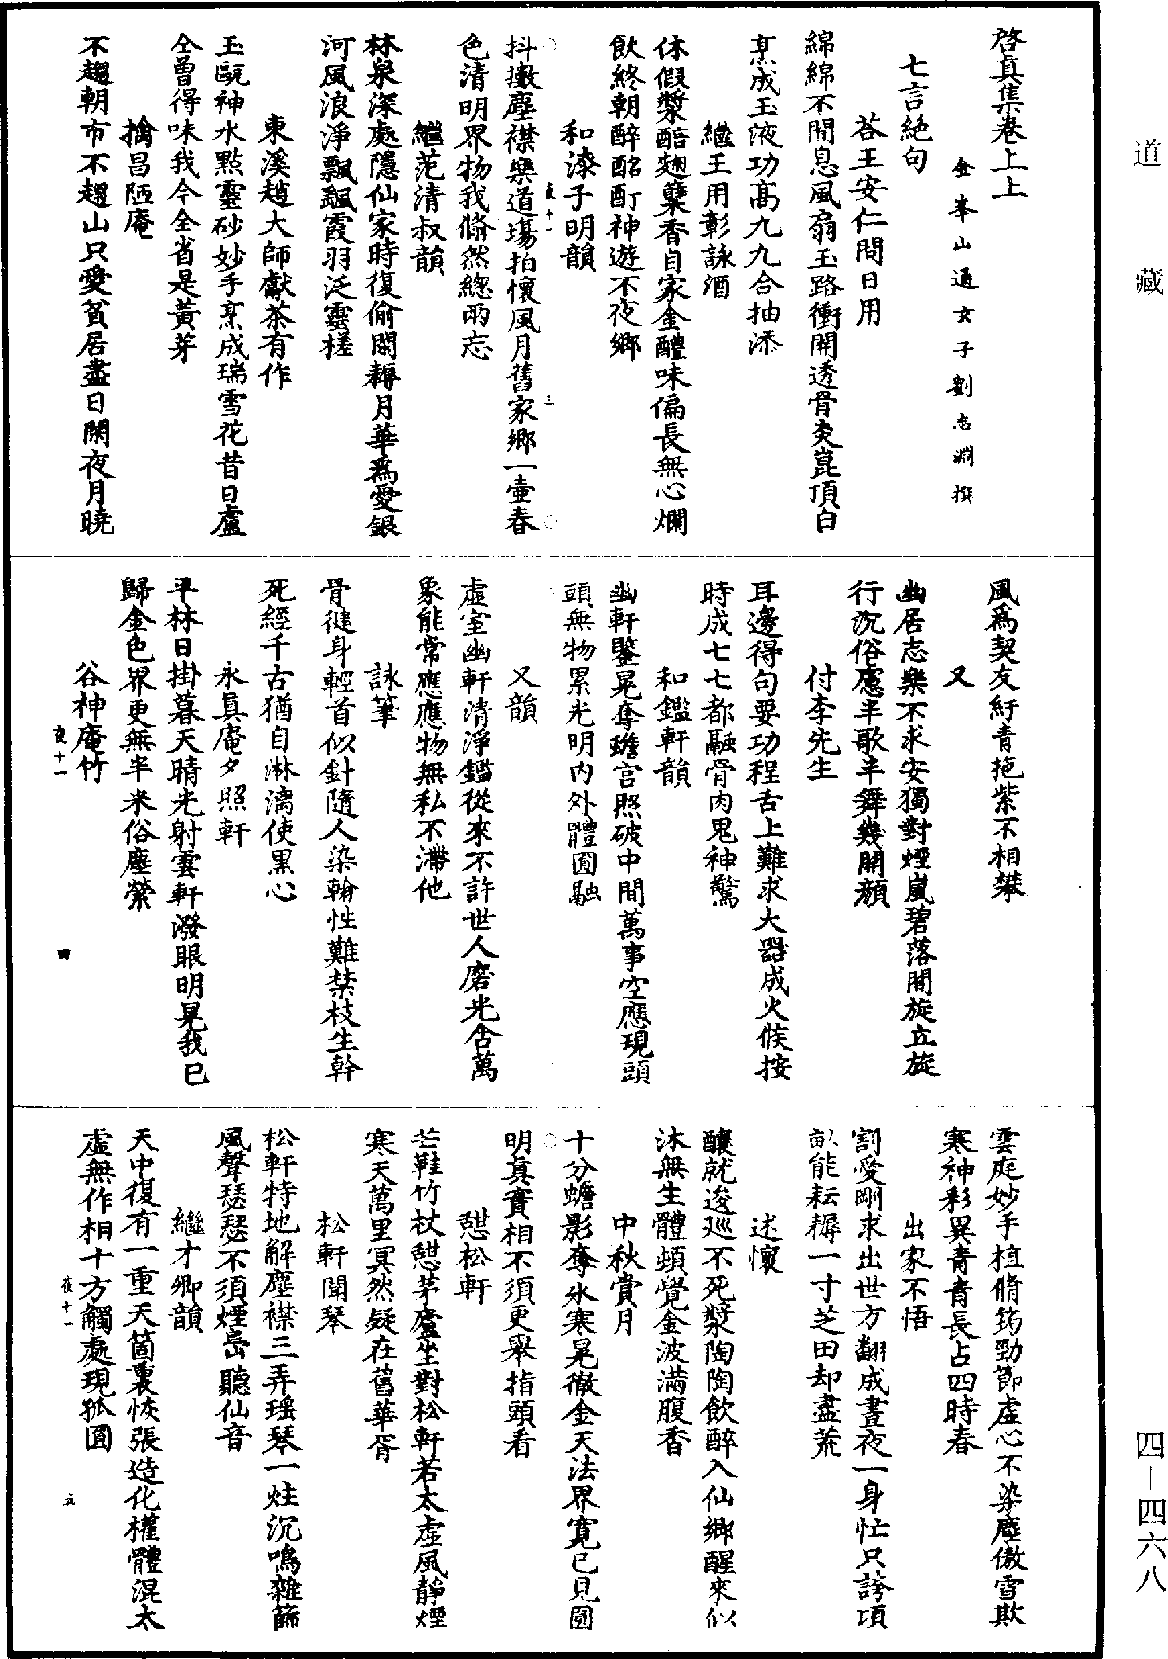 道藏
四—四六八
啓真集卷上上
金峯山通玄子劉志淵撰
七言絕句
荅王安仁問日用
綿綿不間息風扇玉路衝開透骨炎崑頂白
烹成玉液功高九九合抽添
繼王用彰詠酒
休假漿醅麹櫱香自家金醴味偏長無心爛
飲終朝醉酩酊神遊不夜鄉
和漆子明韻
抖擻塵襟樂道場拍懷風月舊家鄉一壷春
色清明界物我翛然緫兩忘
繼范清叔韻
林泉深處隱仙家時復偷閑耨月華為愛銀
河風浪淨飄飄霞羽泛靈槎
東溪趙大師獻茶有作
玉甌神水點靈砂妙手烹成瑞雪花昔日盧
仝曾得味我今全省是黃芽
擒昌陋庵
不趨朝市不趨山只愛貧居盡日閑夜月曉
風為契友紆青拖紫不相攀
又
幽居志樂不求安獨對煙嵐碧落間旋立旋
行沉俗慮半歌半舞幾開顏
付李先生
耳邊得句要功程舌上難求大器成火候按
時成七七都融骨肉鬼神驚
和鑑軒韻
幽軒鑒晃奪蟾宮照破中間萬事空應現頭
頭無物累光明內外體圓融
又韻
虛室幽軒清淨鑑從來不許世人磨光含萬
象能常應應物無私不滯他
詠筆
骨徤身輕首似針隨人染翰性難禁枝生幹
死經千古猶自淋漓使黑心
永真庵夕照軒
平林日掛暮天晴光射雲軒潑眼明晃我已
歸金色界更無半米俗塵縈
谷神庵竹
雲庭妙手植脩筠勁節虛心不染塵傲雪欺
寒神彩異青青長占四時春
出家不悟
割愛剛求出世方翻成晝夜一身忙只誇項
畝能耘耨一寸芝田却盡荒
述懷
釀就逡巡不死漿陶陶飲醉入仙鄉醒來似
沐無生體頓覺金波滿腹香
中秋賞月
十分蟾影奪氷寒晃徹金天法界寬已見圓
明真實相不須更舉指頭看
憇松軒
芒鞋竹杖憇茅廬坐對松軒若太虛風靜煙
寒天萬里冥然疑在舊華胥
松軒聞琴
松軒特地解塵襟三弄瑤琴一炷沉鳴雜篩
風聲瑟瑟不須煙嵓聽仙音
繼才卿韻
天中復有一重天箇裏恢張造化權體混太
虛無作相十方觸處現孤圓